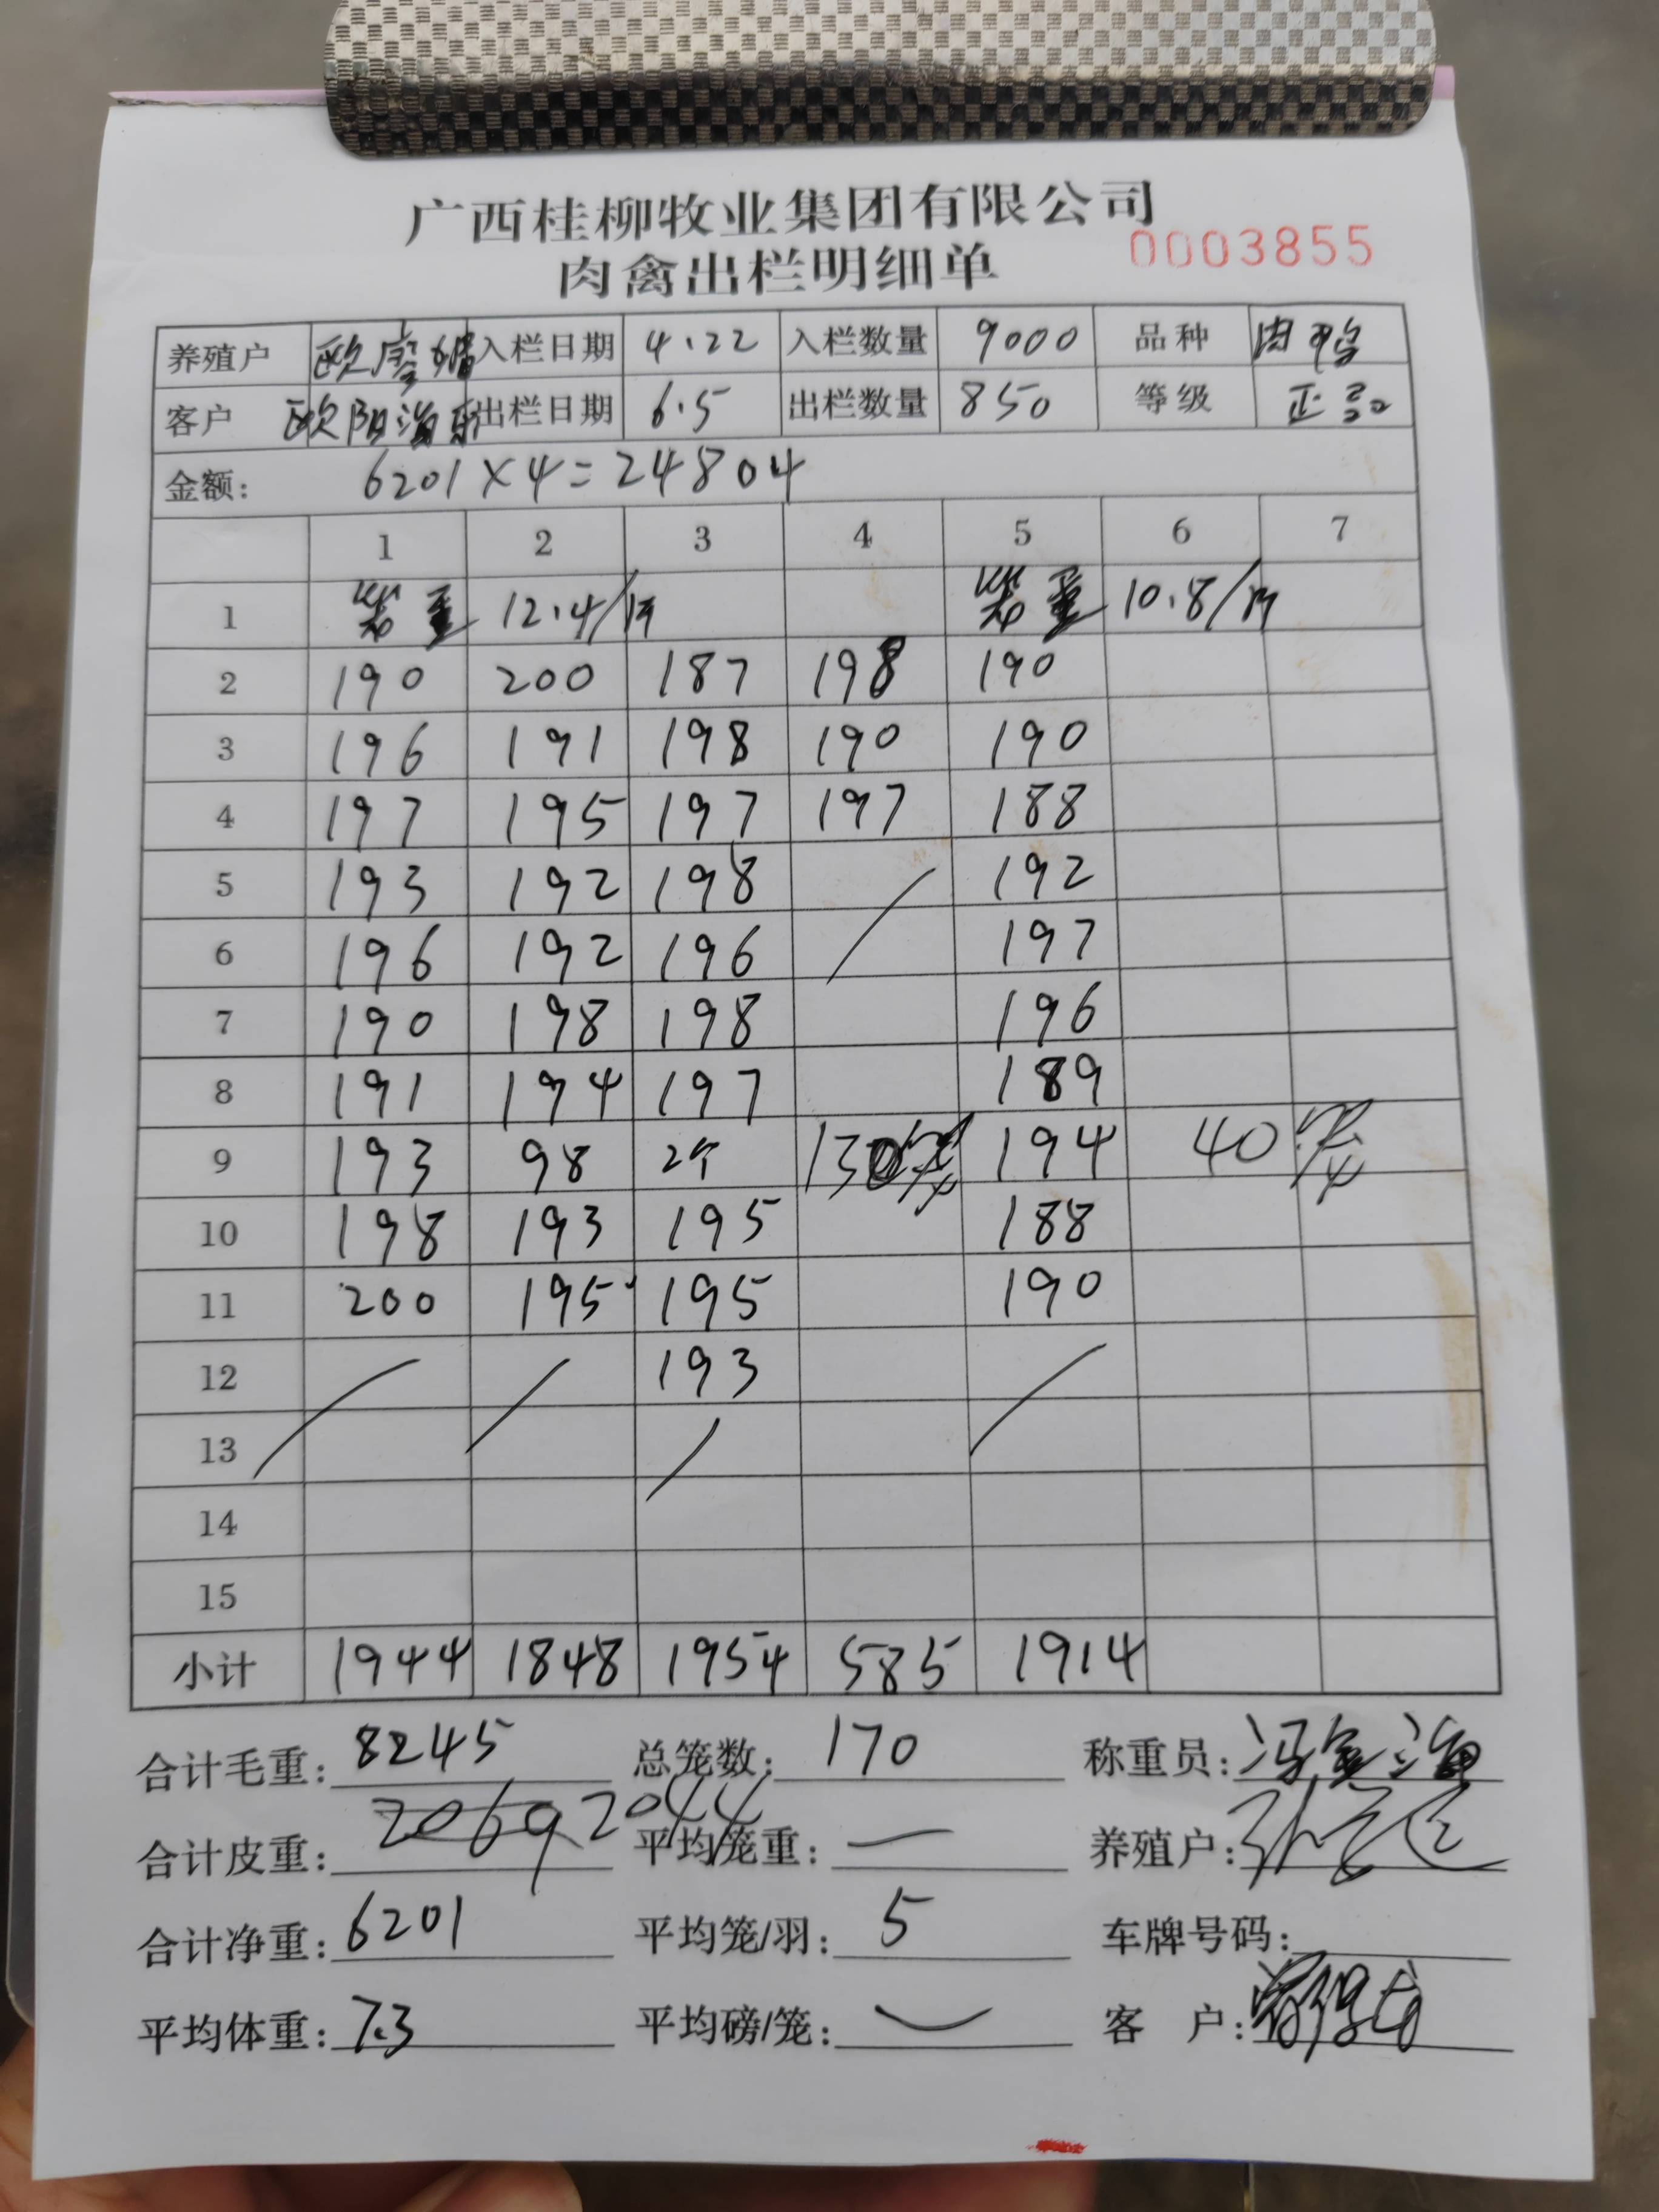 广西桂柳牧业集团有限公司
肉禽出栏明细单 0003855
养殖户 入栏日期 4.22 入栏数量 9000 品种 肉鸭
客户 欧阳海 出栏日期 6.5 出栏数量 850 等级 正品
金额: 6201×4=24804
1 2 3 4 5 6 7
1 笼重 12.4/ 笼重 10.8/
2 190 200 187 198 190
3 196 191 198 190 190
4 197 195 197 197 188
5 193 192 198 192
6 196 192 196 197
7 190 198 198 196
8 191 194 197 189
9 193 98 2个 130 194 40
10 198 193 195 188
11 200 195 195 190
12 193
13
14
15
小计 1944 1848 1954 585 1914
合计毛重: 8245 总笼数: 170 称重员:
合计皮重: 2069 2044 平均笼重: 养殖户:
合计净重: 6201 平均笼/羽: 5 车牌号码:
平均体重: 7.3 平均磅/笼: 客 户: